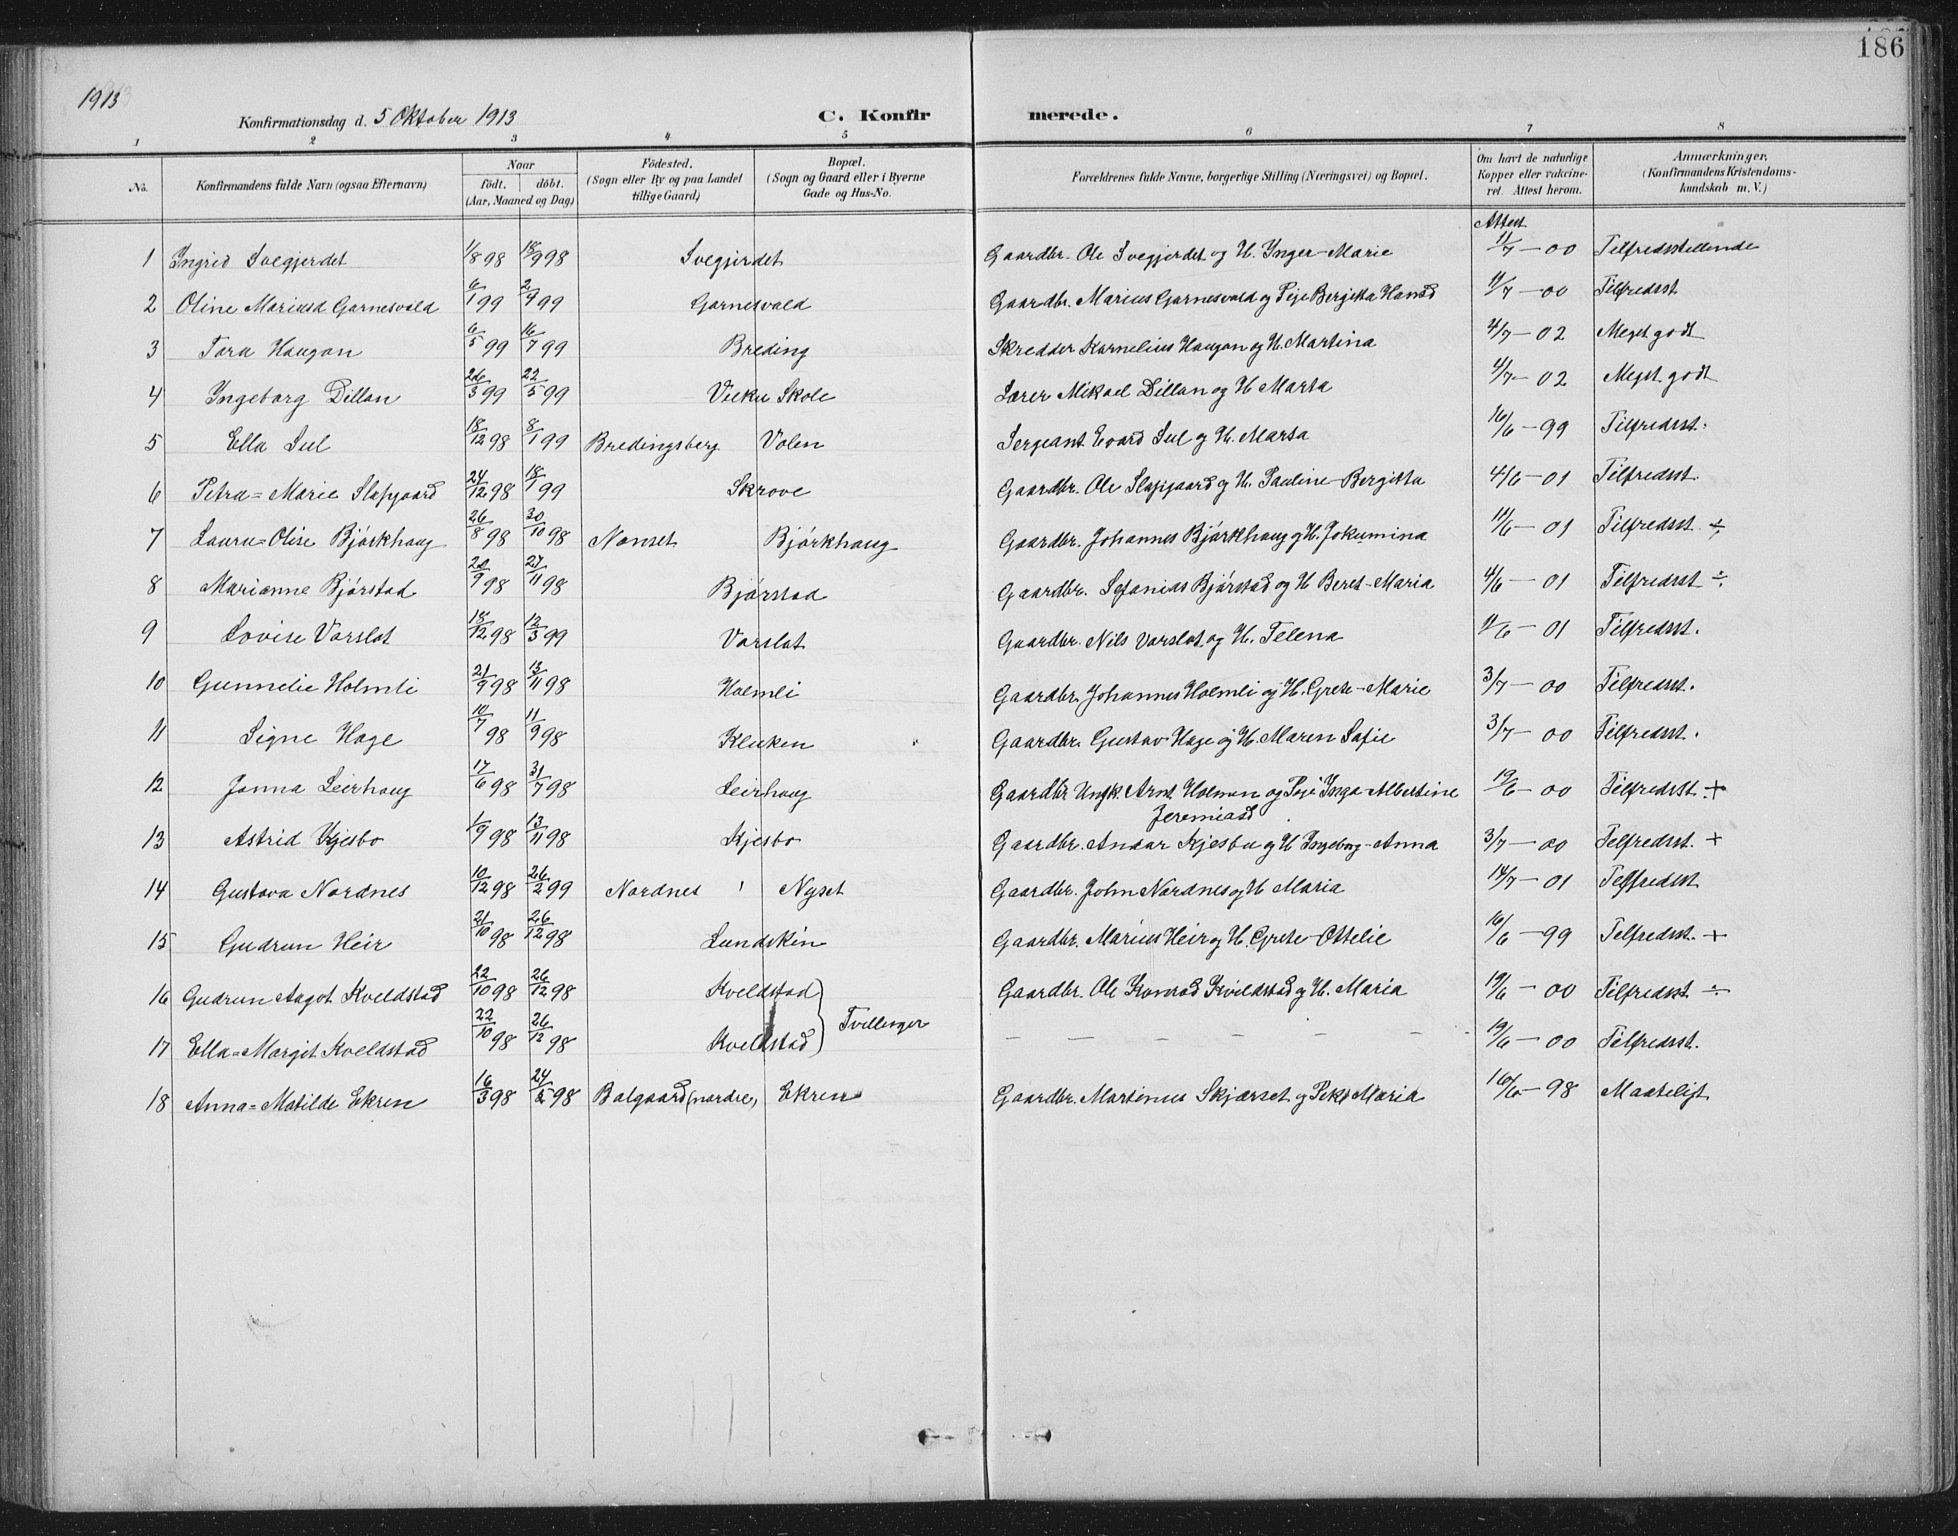 186
1913
Konfirmationsdag d. 5 Oktober 1913
C. Konfirmerede.
1 2 3 4 5 6 7 8
No. Konfirmandens fulde Navn (ogsaa Efternavn) Naar födt. döbt. (Aar, Maaned og Dag) Födested. (Sogn eller By og paa Landet tillige Gaard) Bopæl. (Sogn og Gaard eller i Byerne Gade og Hus-No. Forældrenes fulde Navne, borgerlige Stilling (Næringsvei) og Bopæl. Om havt de naturlige Kopper eller vakcineret. Attest herom. Anmærkninger. (Konfirmandens Kristendomskundskab m. V.)
Attest
1 Ingrid Svegjerdet 1/8 98 18/9 98 Svegjerdet Gaardbr. Ole Svegjerdet og H. Inger-Marie 11/7 - 00 Tilfredsstillende
2 Oline Mariusd Garnesvald 6/1 99 2/4 99 Garnesvald Gaardbr. Marius Garnesvald og Pije Bergitta Hansd 11/7 - 00 Tilfredsst
3 Tora Haugan 6/5 99 16/7 99 Breding Skredder Kornelius Haugan og H. Martina 4/7 - 02 Meget godt
4 Ingeborg Dillan 26/3 99 22/5 99 Vuku Skole Lærer Mikael Dillan og H Marta 4/7 - 02 Meget godt
5 Ella Sul 18/12 98 8/1 99 Bredingsberg Volen Sergeant Evard Sul og H. Marta 16/6 - 99 Tilfredsst.
6 Petra=Marie Slapgaard 24/12 98 18/1 99 Skrove Gaardbr. Ole Slapgaard og H. Pauline-Bergitta 4/6 - 01 Tilfredsst.
7 Laura=Olise Björkhaug 26/8 98 30/10 98 Nonset Björkhaug Gaardbr. Johannes Björkhaug og H. Jokumina 11/6 - 01 Tilfredsst. ÷
8 Marianne Björstad 20/9 98 27/11 98 Björstad Gaardbr. Sefanias Björstad og H Beret-Maria 4/6 - 01 Tilfredsst ÷
9 Lovise Vorslot 18/12 98 12/3 99 Vorslot Gaardbr. Nils Varslot og H. Telena 11/6 - 01 Tilfredsst.
10 Gunnelie Holmli 21/9 98 13/11 98 Holmli Gaardbr. Johannes Holmli og H. Grete-Marie 3/7 - 00 Tilfredsst.
11 Signe Hage 10/7 98 11/9 98 Kluken Gaardbr. Gustav Hage og H. Maren Sofie 3/7 - 00 Tilfredsst.
12 Janna Leirhaug 17/6 98 31/7 98 Leirhaug Gaardbr Ungk. Arnt Holmen og Pije Inga Albertine Jeremiasd 19/6 - 00 Tilfredsst. +
13 Astrid Kjesbo 1/9 98 13/11 98 Kjesbo Gaardbr. Andar Kjesbu og H Ingeborg-Anna 3/7 - 00 Tilfredsst. +
14 Gustava Nordnes 10/12 98 26/2 99 Nordnes Nyset Gaardbr. John Nordnes og H Maria 14/7 - 01 Tilfredsst
15 Gudrun Heir 21/10 98 26/12 98 Lundskin Gaardbr. Marius Heir og H. Grete-Ottelie 16/6 - 99 Tilfredsst. +
16 Gudrun Aagot Kveldstad 22/10 98 26/12 98 Kveldstad Gaardbr. Ole Konrad Kveldstad og H. Maria 19/6 - 00 Tilfredsst ÷
Tvillinger
17 Ella=Margit Kveldstad 22/10 98 26/12 98 Kveldstad — — — — — — 19/6 - 00 Tilfredsst.
18 Anna=Matilde Ekren 16/3 98 24/5 98 Balgaard (nordre) Ekren Gaardbr. Martinus Skjærset og Maria 16/6 - 98 Maateligt